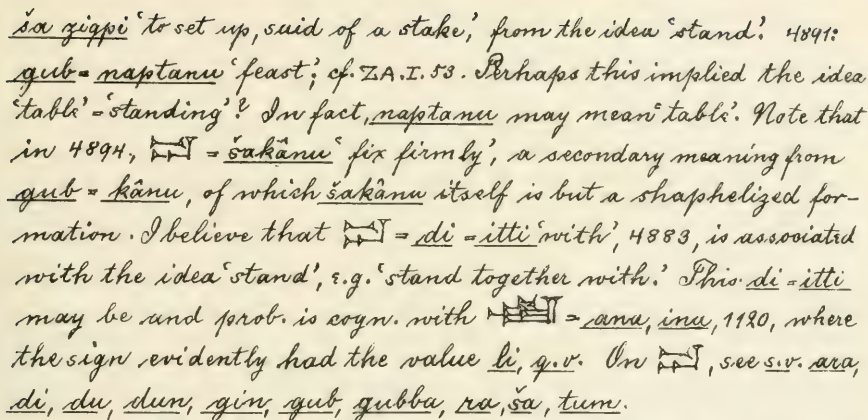 ša ziqpi 'to set up, said of a stake,' from the idea 'stand'. 4891:
gub = naptanu 'feast'; cf. ZA. I. 53. Perhaps this implied the idea
'table' = 'standing'? In fact, naptanu may mean 'table'. Note that
in 4894, 𒁺 = šakânu 'fix firmly', a secondary meaning from
gub = kânu, of which šakânu itself is but a shaphelized for-
mation. I believe that 𒁺 = di = itti 'with', 4883, is associated
with the idea 'stand', e.g. 'stand together with.' This di = itti
may be and prob. is cogn. with = ana, ina, 1120, where
the sign evidently had the value li, q.v. On 𒁺, see s.v. ara,
di, du, dun, gin, gub, gubba, ra, ša, tum.